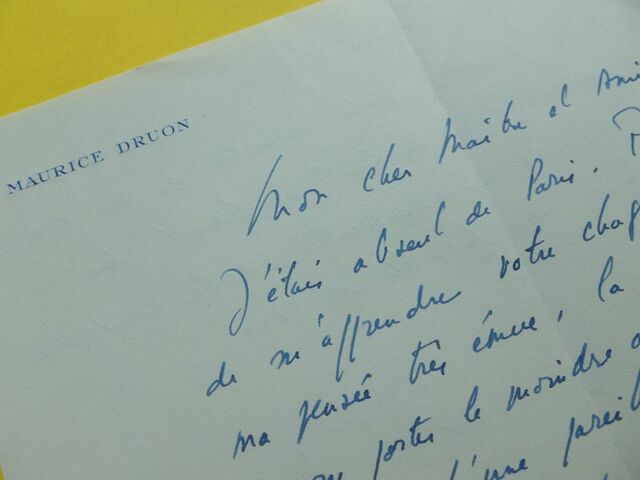 MAURICE DRUON
Mon cher Maître et Ami
J'étais absent de Paris.
de m'apprendre votre chag
ma pensée très émue, la
porter le moindre
d'une pareil